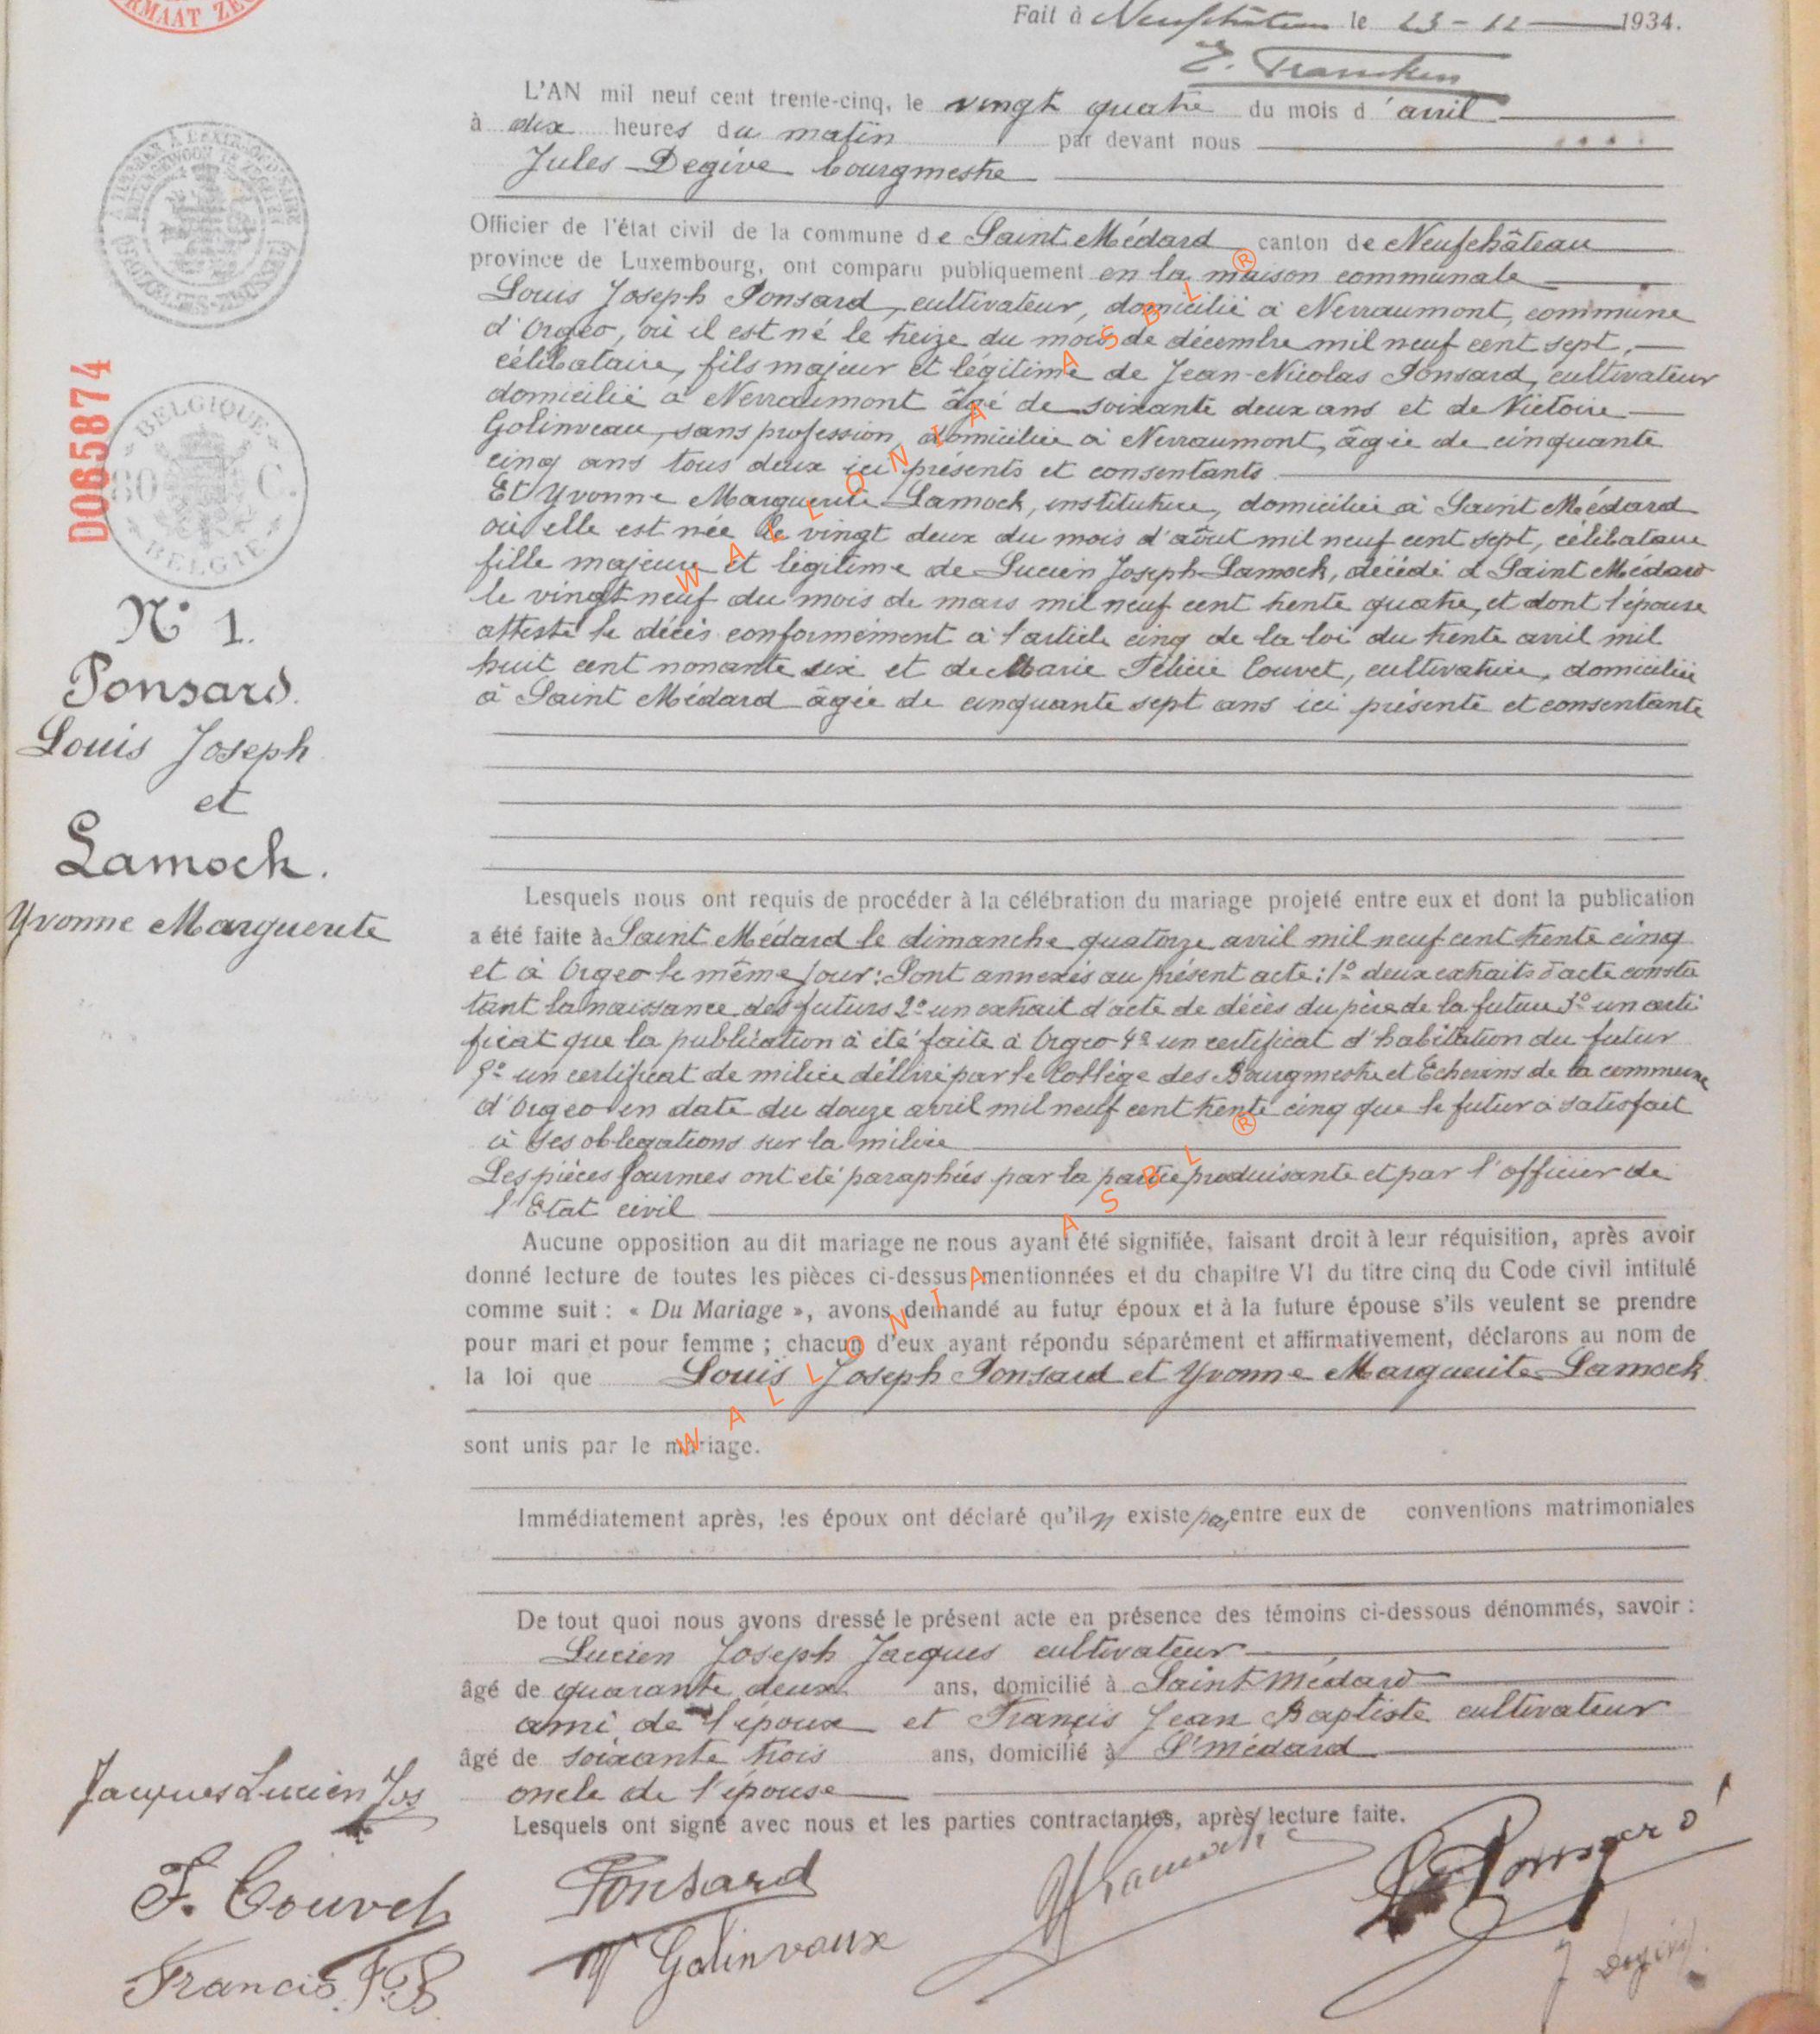 RMAAT ZE
Fait à Neufchâteau le 23-12 1934.
L'AN mil neuf cent trente-cinq, le vingt quatre du mois d'avril
à dix heures du matin par devant nous
Jules Degive bourgmestre
Officier de l'état civil de la commune de Saint Médard canton de Neufchâteau
province de Luxembourg, ont comparu publiquement en la maison communale
Louis Joseph Ponsard, cultivateur, domicilié à Nevraumont, commune
d'Orgeo, où il est né le treize du mois de décembre mil neuf cent sept,
célibataire, fils majeur et légitime de Jean-Nicolas Ponsard, cultivateur
domicilié à Nevraumont âgé de soixante deux ans et de Victoire
Golinveau, sans profession, domiciliée à Nevraumont, âgée de cinquante
cinq ans tous deux ici présents et consentants
Et Yvonne Marguerite Lamock, institutrice, domiciliée à Saint Médard
où elle est née le vingt deux du mois d'août mil neuf cent sept, célibataire
fille majeure et légitime de Lucien Joseph Lamock, décédé à Saint Médard
le vingt neuf du mois de mars mil neuf cent trente quatre, et dont l'épouse
atteste le décès conformément à l'article cinq de la loi du trente avril mil
huit cent nonante six et de Marie Félicie Couvet, cultivatrice, domiciliée
à Saint Médard âgée de cinquante sept ans ici présente et consentante
D065874
BELGIQUE
80 C.
BELGIE
N° 1.
Ponsard.
Louis Joseph
et
Lamock.
Yvonne Marguerite
Lesquels nous ont requis de procéder à la célébration du mariage projeté entre eux et dont la publication
a été faite à Saint Médard le dimanche quatorze avril mil neuf cent trente cinq
et à Orgeo le même jour: Sont annexés au présent acte: 1° deux extraits d'acte consta
tant la naissance des futurs 2° un extrait d'acte de décès du père de la future 3° un certi
ficat que la publication à été faite à Orgeo 4° un certificat d'habitation du futur
5° un certificat de milice délivré par le Collège des Bourgmestre et Echevins de la commune
d'Orgeo en date du douze avril mil neuf cent trente cinq que le futur a satisfait
à ses obligations sur la milice
Les pièces fournies ont été paraphées par la partie produisante et par l'officier de
l'Etat civil
Aucune opposition au dit mariage ne nous ayant été signifiée, faisant droit à leur réquisition, après avoir
donné lecture de toutes les pièces ci-dessus mentionnées et du chapitre VI du titre cinq du Code civil intitulé
comme suit : « Du Mariage », avons demandé au futur époux et à la future épouse s'ils veulent se prendre
pour mari et pour femme ; chacun d'eux ayant répondu séparément et affirmativement, déclarons au nom de
la loi que Louis Joseph Ponsard et Yvonne Marguerite Lamock
sont unis par le mariage.
Immédiatement après, les époux ont déclaré qu'il n existe pas entre eux de conventions matrimoniales
De tout quoi nous avons dressé le présent acte en présence des témoins ci-dessous dénommés, savoir :
Lucien Joseph Jacques cultivateur
âgé de quarante deux ans, domicilié à Saint Médard
ami de l'époux et Francis Jean Baptiste cultivateur
âgé de soixante trois ans, domicilié à St Médard
oncle de l'épouse
Lesquels ont signé avec nous et les parties contractantes, après lecture faite.
Jacques Lucien Jos
F. Couvet
Francis J.B
Ponsard
V Golinvaux
Y Lamock
L Ponsard
J Degive
WALLONIA ASBL ®
WALLONIA ASBL ®